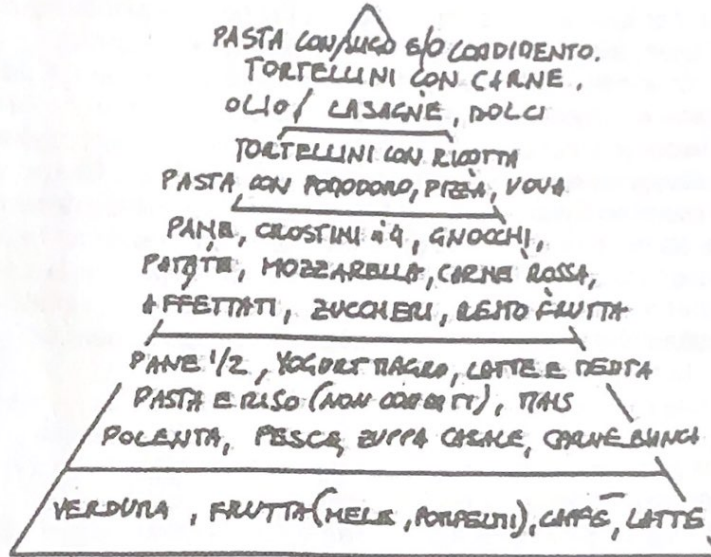 PASTA CON SUGO E/O CONDIMENTO.
TORTELLINI CON CARNE,
OLIO / LASAGNE, DOLCI
TORTELLINI CON RICOTTA
PASTA CON POMODORO, PIZZA, UOVA
PANE, CROSTINI 4, GNOCCHI,
PATATE, MOZZARELLA, CARNE ROSSA,
AFFETTATI, ZUCCHERI, RESTO FRUTTA
PANE 1/2, YOGURT MAGRO, LATTE E
PASTA E RISO (NON CONDITI), MAIS
POLENTA, PESCE, ZUPPA CASALE, CARNE BIANCA
VERDURA, FRUTTA (MELE, POMPELMI), CAFFÈ, LATTE